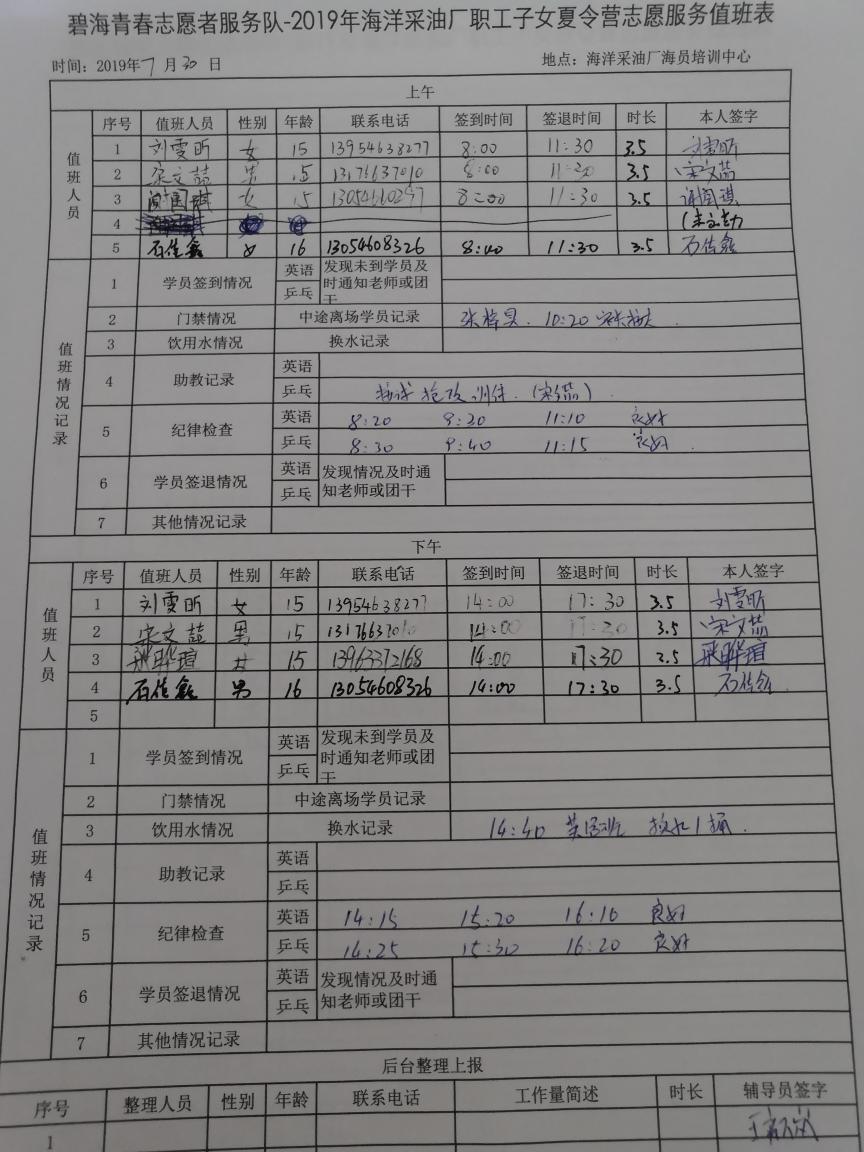 碧海青春志愿者服务队-2019年海洋采油厂职工子女夏令营志愿服务值班表
时间：2019年7月30日 地点：海洋采油厂海员培训中心
上午
值班人员
序号 值班人员 性别 年龄 联系电话 签到时间 签退时间 时长 本人签字
1 刘雯昕 女 15 13954638277 8:00 11:30 3.5 刘雯昕
2 宋文喆 男 15 13176637010 8:00 11:30 3.5 宋文喆
3 女 15 13054660297 8:00 11:30 3.5
4
5 石佳鑫 女 16 13054608326 8:40 11:30 3.5 石佳鑫
值班情况记录
1 学员签到情况 英语 乒乓 发现未到学员及时通知老师或团干
2 门禁情况 中途离场学员记录 10:20
3 饮用水情况 换水记录
4 助教记录 英语
乒乓
5 纪律检查 英语 8:20 9:30 11:10 良好
乒乓 8:30 9:40 11:15 良好
6 学员签退情况 英语 乒乓 发现情况及时通知老师或团干
7 其他情况记录
下午
值班人员
序号 值班人员 性别 年龄 联系电话 签到时间 签退时间 时长 本人签字
1 刘雯昕 女 15 13954638277 14:00 17:30 3.5 刘雯昕
2 宋文喆 男 15 13176637010 14:00 17:30 3.5 宋文喆
3 女 15 13963372168 14:00 17:30 2.5
4 石佳鑫 男 16 13054608326 14:00 17:30 3.5 石佳鑫
5
值班情况记录
1 学员签到情况 英语 乒乓 发现未到学员及时通知老师或团干
2 门禁情况 中途离场学员记录
3 饮用水情况 换水记录 14:40 英语班 换水1桶.
4 助教记录 英语
乒乓
5 纪律检查 英语 14:15 15:20 16:10 良好
乒乓 14:25 15:30 16:20 良好
6 学员签退情况 英语 乒乓 发现情况及时通知老师或团干
7 其他情况记录
后台整理上报
序号 整理人员 性别 年龄 联系电话 工作量简述 时长 辅导员签字
1